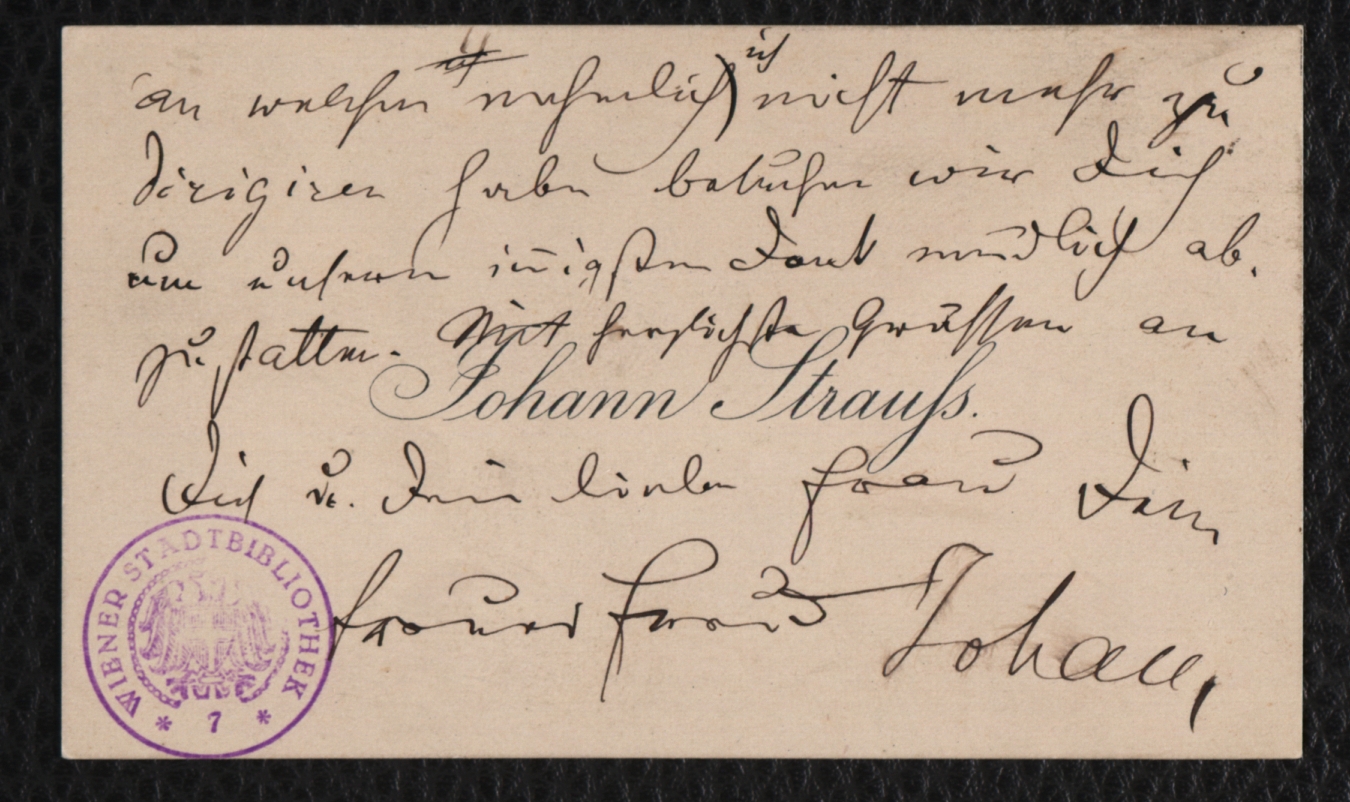 an welchen wahrlich) ich nicht mehr zu
dirigiren habe besuchen wir Dich
um unsern iñigsten Dank mündlich ab-
zustatten. Mit herzlichsten Grüssen an
Johann Strauss.
Dich u. Deine liebe Frau Dein
treuer Freund Johann
WIENER STADTBIBLIOTHEK
* 7 *